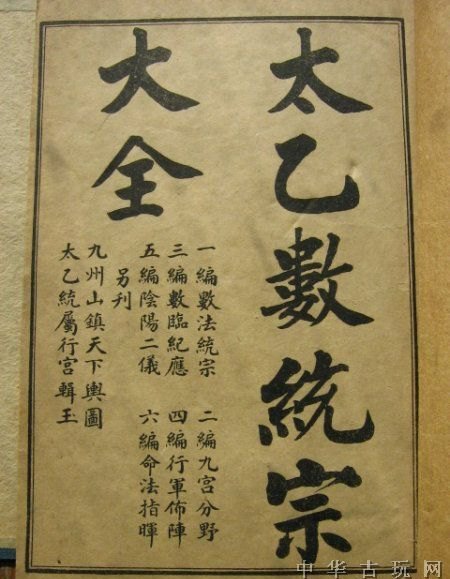 太乙數統宗
大全
一編數法統宗 二編九宮分野
三編數臨紀應 四編行軍佈陣
五編陰陽二儀 六編命法指暉
另刋
九州山鎮天下輿圖
太乙統屬行宮輯玉
中华古玩网